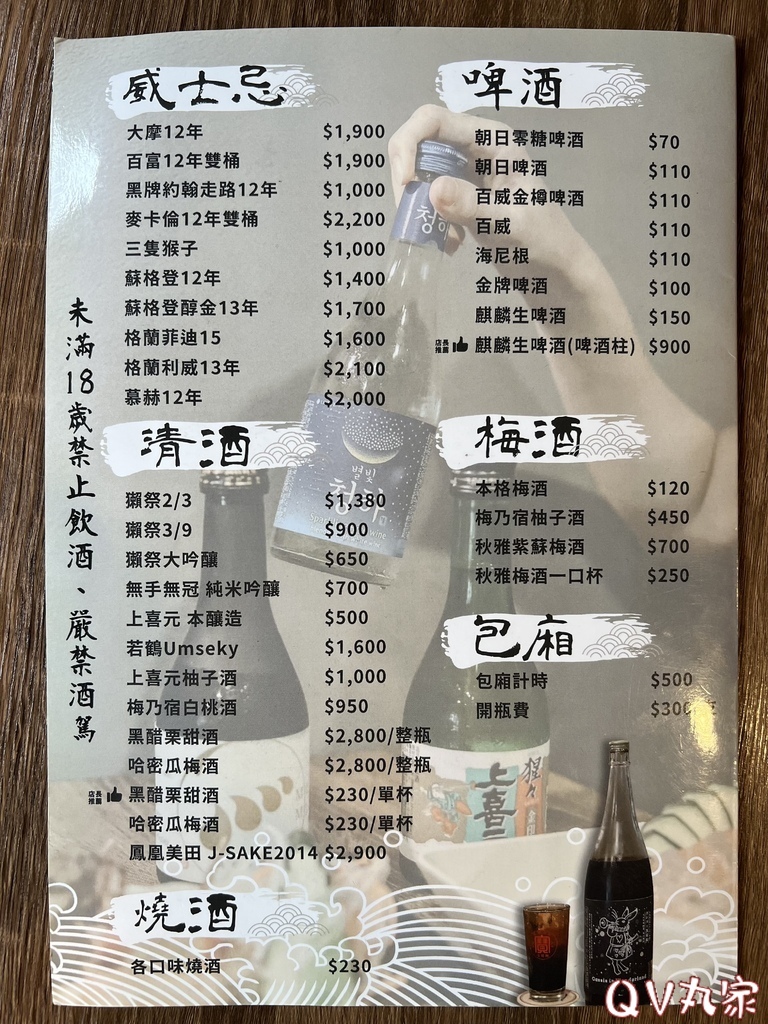 未滿18歲禁止飲酒、嚴禁酒駕
威士忌
大摩12年 $1,900
百富12年雙桶 $1,900
黑牌約翰走路12年 $1,000
麥卡倫12年雙桶 $2,200
三隻猴子 $1,000
蘇格登12年 $1,400
蘇格登醇金13年 $1,700
格蘭菲迪15 $1,600
格蘭利威13年 $2,100
慕赫12年 $2,000
清酒
獺祭2/3 $1,380
獺祭3/9 $900
獺祭大吟釀 $650
無手無冠 純米吟釀 $700
上喜元 本釀造 $500
若鶴Umseky $1,600
上喜元柚子酒 $1,000
梅乃宿白桃酒 $950
黑醋栗甜酒 $2,800/整瓶
哈密瓜梅酒 $2,800/整瓶
店長推薦 黑醋栗甜酒 $230/單杯
哈密瓜梅酒 $230/單杯
鳳凰美田 J-SAKE2014 $2,900
燒酒
各口味燒酒 $230
啤酒
朝日零糖啤酒 $70
朝日啤酒 $110
百威金樽啤酒 $110
百威 $110
海尼根 $110
金牌啤酒 $100
麒麟生啤酒 $150
店長推薦 麒麟生啤酒(啤酒柱) $900
梅酒
本格梅酒 $120
梅乃宿柚子酒 $450
秋雅紫蘇梅酒 $700
秋雅梅酒一口杯 $250
包廂
包廂計時 $500
開瓶費 $300
별빛
청하
上喜
QV丸家